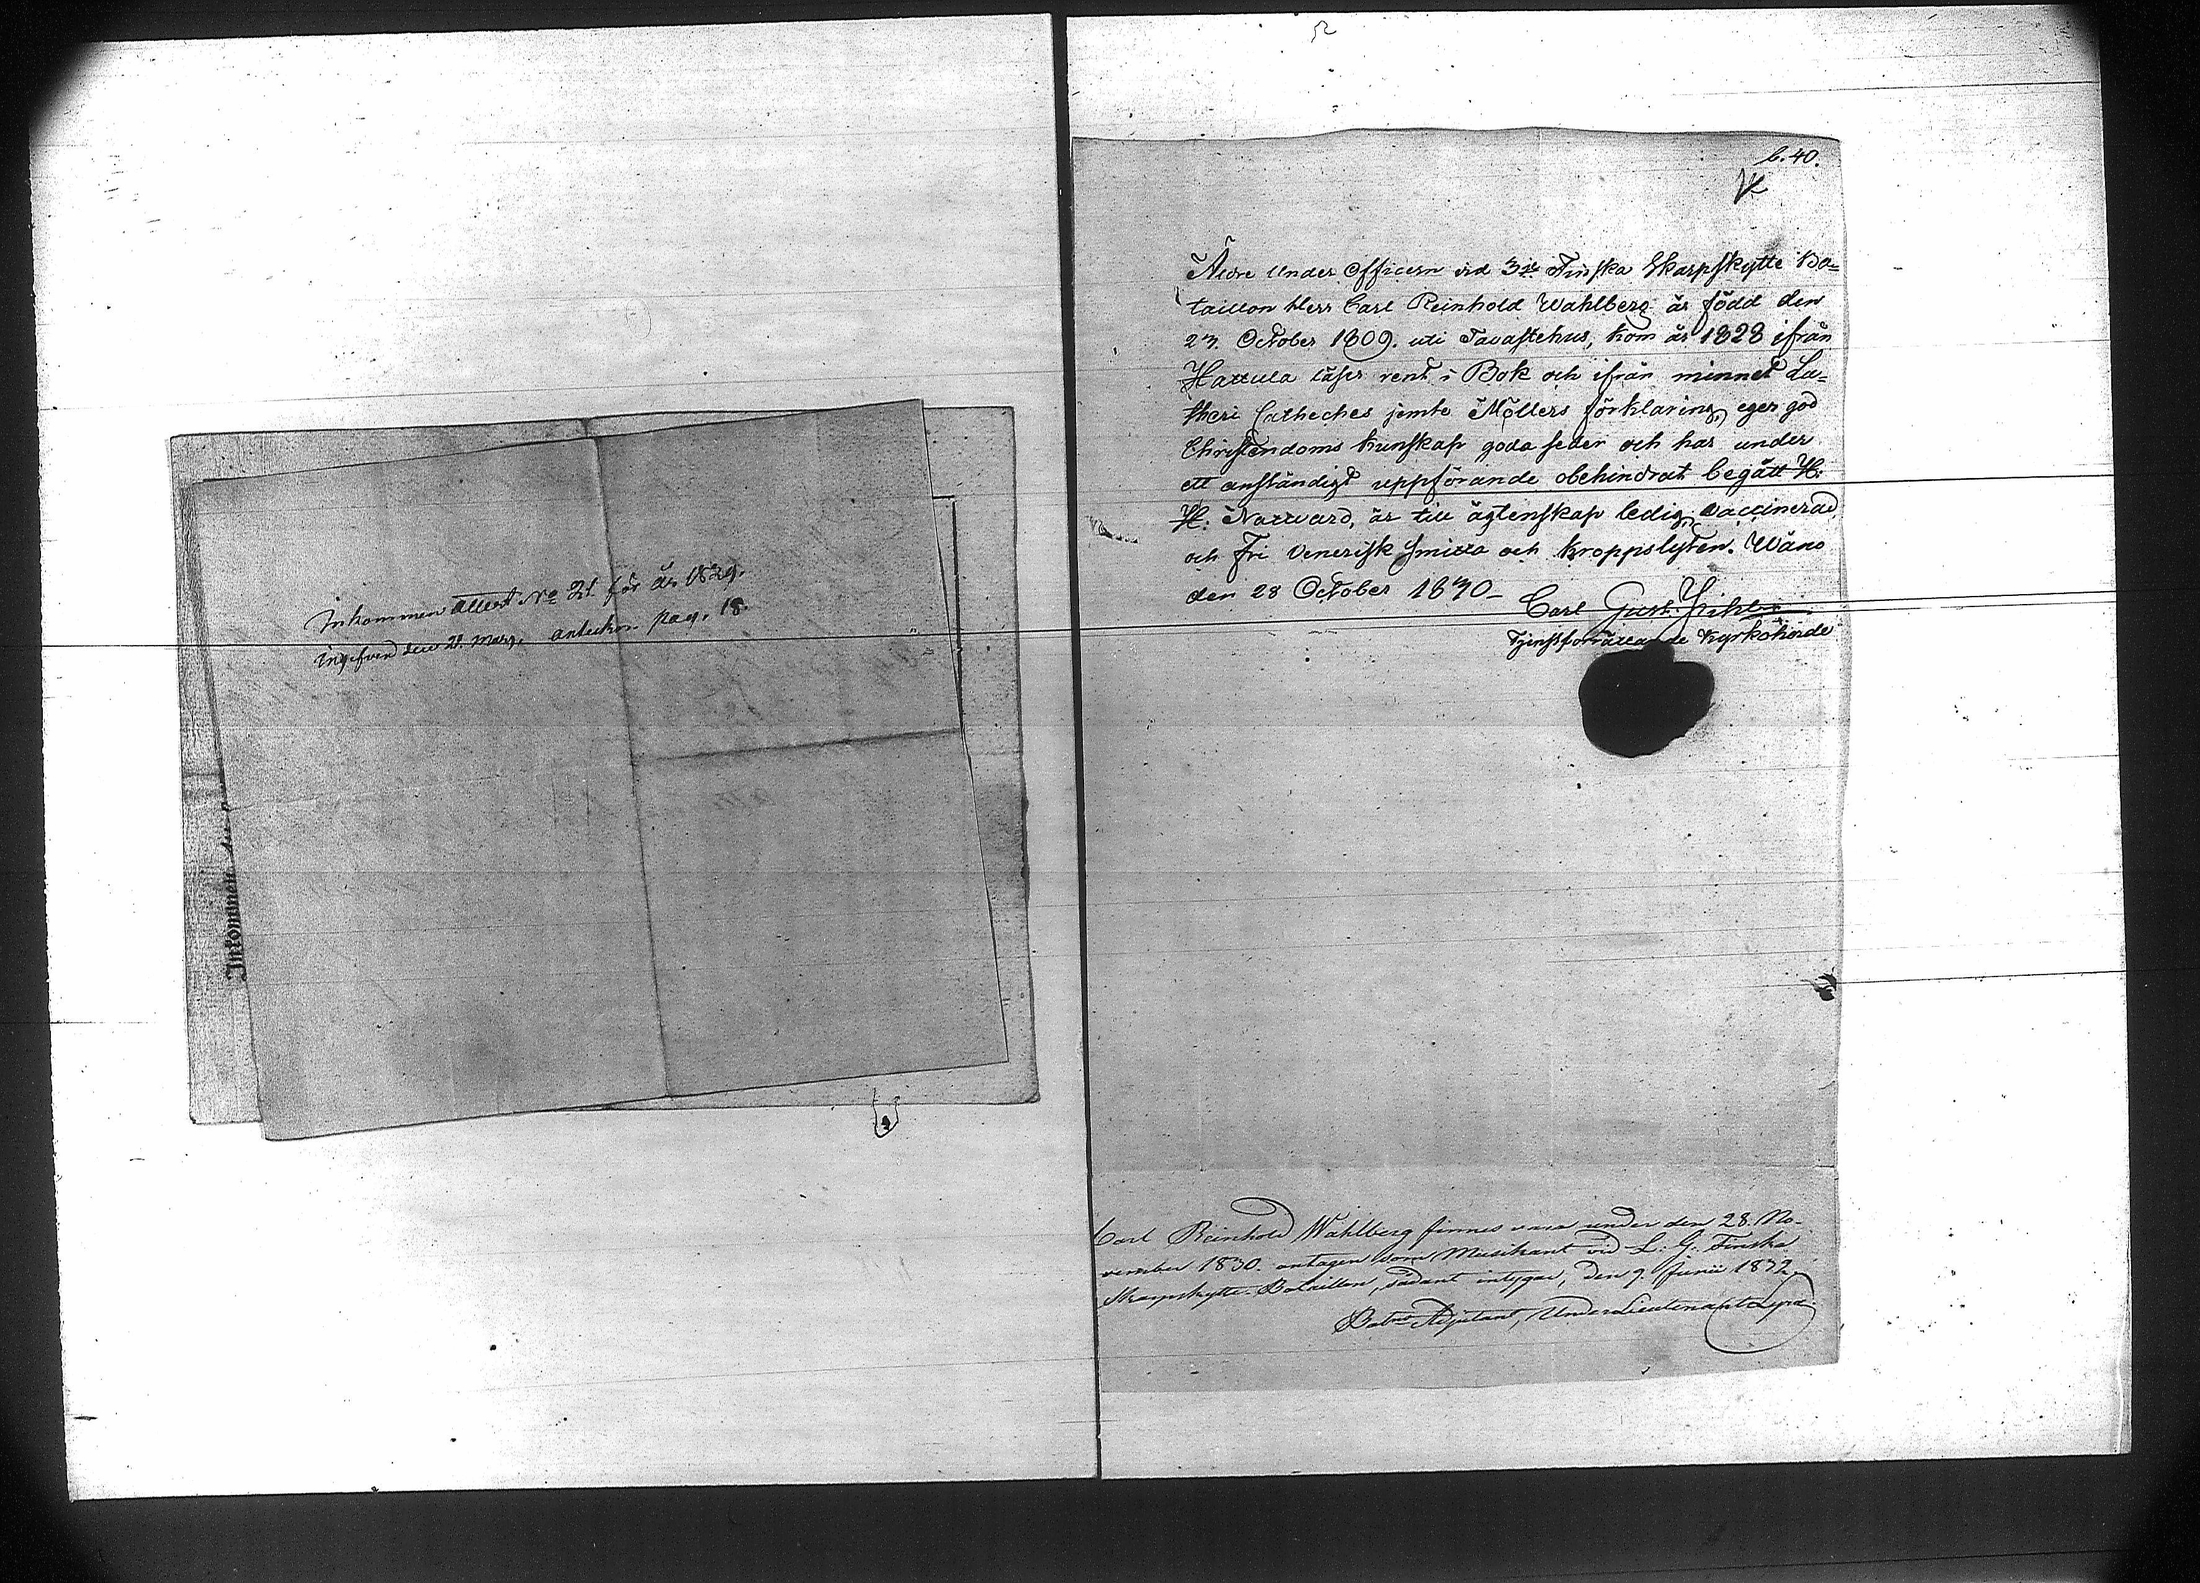 Inkommen attest No 21 för år 1829.
ingifven den 21 Mars, anteckn. pag. 18.
Inkommen
b. 40.
Äldre Under Officern vid 3dje Finska Skarpskytte Ba=
taillon Herr Carl Reinhold Wahlberg är född den
23 October 1809. uti Tavastehus, kom år 1828 ifrån
Hattula läser rent i Bok och ifrån minnet Lu=
theri Catheches jemte Möllers förklaring, eger god
Christendoms kunskap goda seder och har under
ett anständigt uppförande obehindrat begått H:
H: Nattvard, är till ägtenskap ledig, vaccinerad
och fri Venerisk smitta och kroppslyten. Wånå
den 28 October 1830_
Carl Gust.
Tjenstförrättande Kyrkoherde
Carl Reinhold Wahlberg finnes vara under den 28. No-
vember 1830. antagen som Musikant vid L: G: Finska
Skarpskytte-Bataillon, sådant intygar, den 9. Junii 1832.
Batns Adjutant, UnderLieutenant